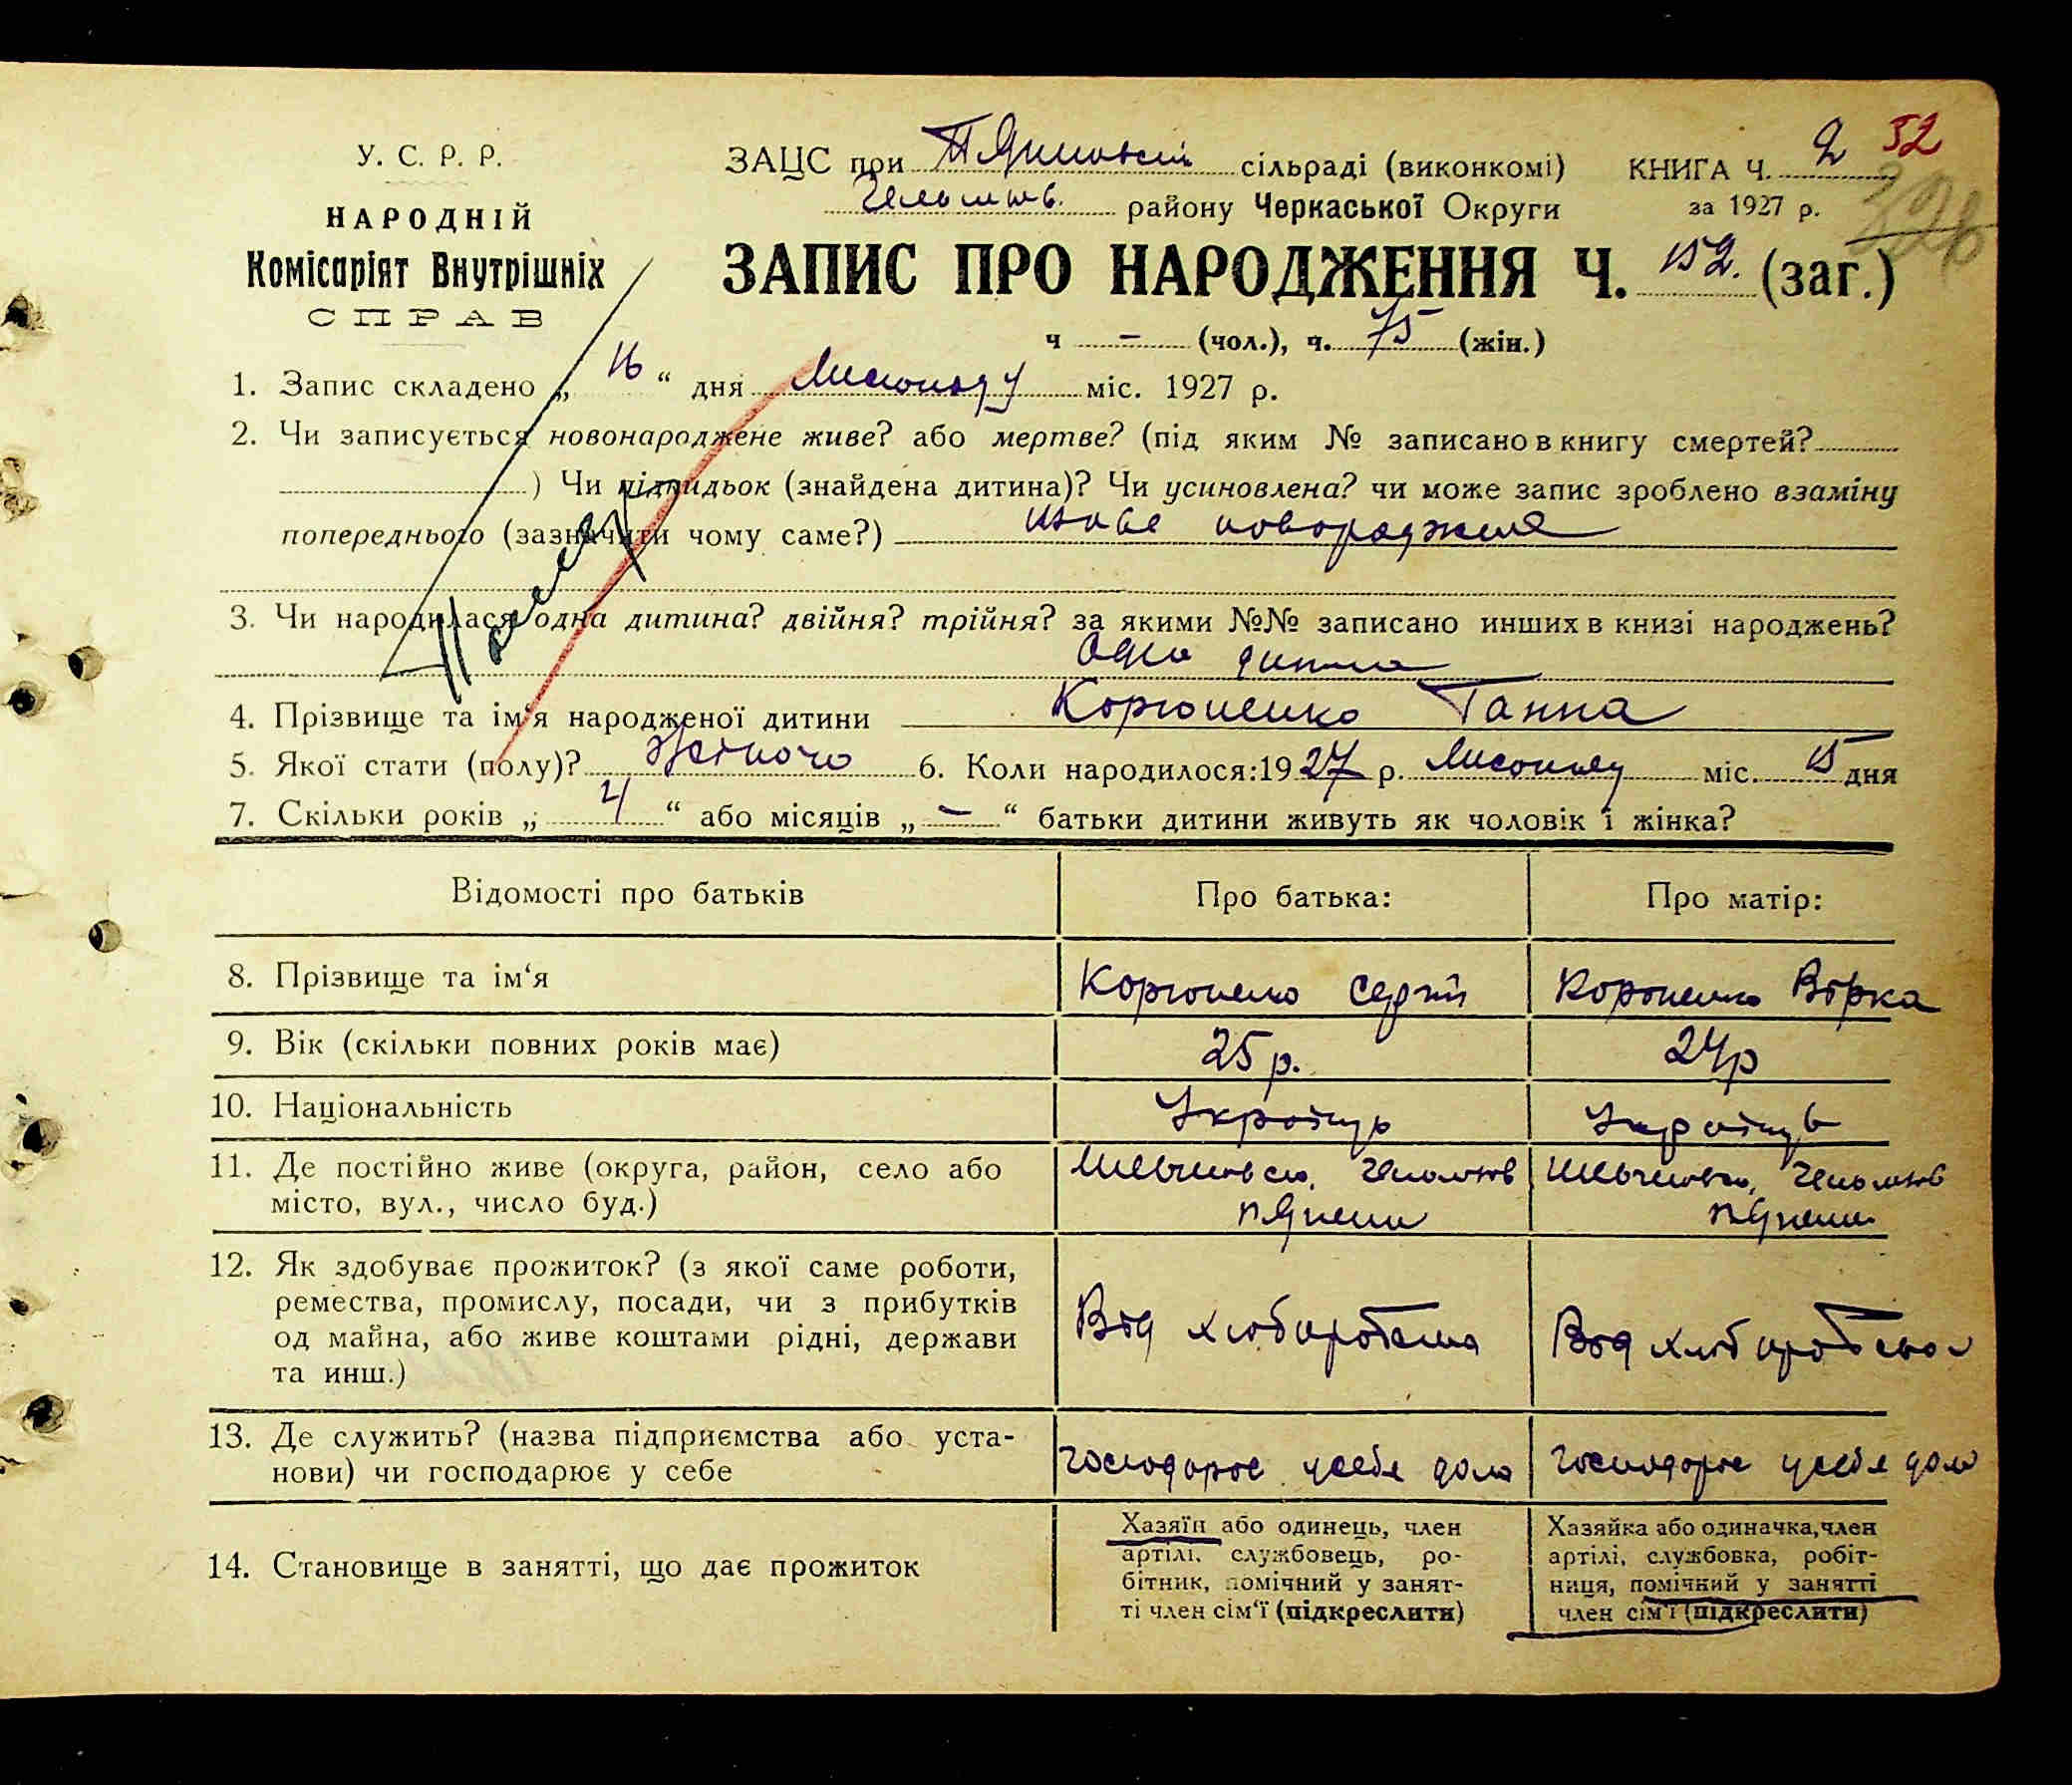 У. С. Р. Р.
НАРОДНІЙ
Комісаріят Внутрішніх
СПРАВ
ЗАЦС при сільраді (виконкомі)
району Черкаської Округи
КНИГА Ч. 2 52
за 1927 р.
326
ЗАПИС ПРО НАРОДЖЕННЯ Ч. 152. (заг.)
ч — (чол.), ч. 75 (жін.)
1. Запис складено „ 16 “ дня Листопаду міс. 1927 р.
2. Чи записується новонароджене живе? або мертве? (під яким № записано в книгу смертей?
) Чи підкидьок (знайдена дитина)? Чи усиновлена? чи може запис зроблено взаміну
попереднього (зазначити чому саме?) живе
3. Чи народилася одна дитина? двійня? трійня? за якими №№ записано инших в книзі народжень?
Одна дитина
4. Прізвище та ім‘я народженої дитини Корюненко Ганна
5. Якої стати (полу)? Жіночо 6. Коли народилося: 1927 р. Листопаду міс. 15 дня
7. Скільки років „ 4 “ або місяців „ — “ батьки дитини живуть як чоловік і жінка?
Відомості про батьків
Про батька:
Про матір:
8. Прізвище та ім‘я
Корюненко Сергій
Корюненко Вірка
9. Вік (скільки повних років має)
25 р.
24 р
10. Національність
Українць
Українць
11. Де постійно живе (округа, район, село або
місто, вул., число буд.)
12. Як здобуває прожиток? (з якої саме роботи,
ремества, промислу, посади, чи з прибутків
од майна, або живе коштами рідні, держави
та инш.)
Від хліборобства
Від хліборобства
13. Де служить? (назва підприємства або уста-
нови) чи господарює у себе
господорює у себе дома
господорює у себе дома
14. Становище в занятті, що дає прожиток
Хазяїн або одинець, член
артілі, службовець, ро-
бітник, помічний у занят-
ті член сім‘ї (підкреслити)
Хазяйка або одиначка, член
артілі, службовка, робіт-
ниця, помічний у занятті
член сім‘ї (підкреслити)